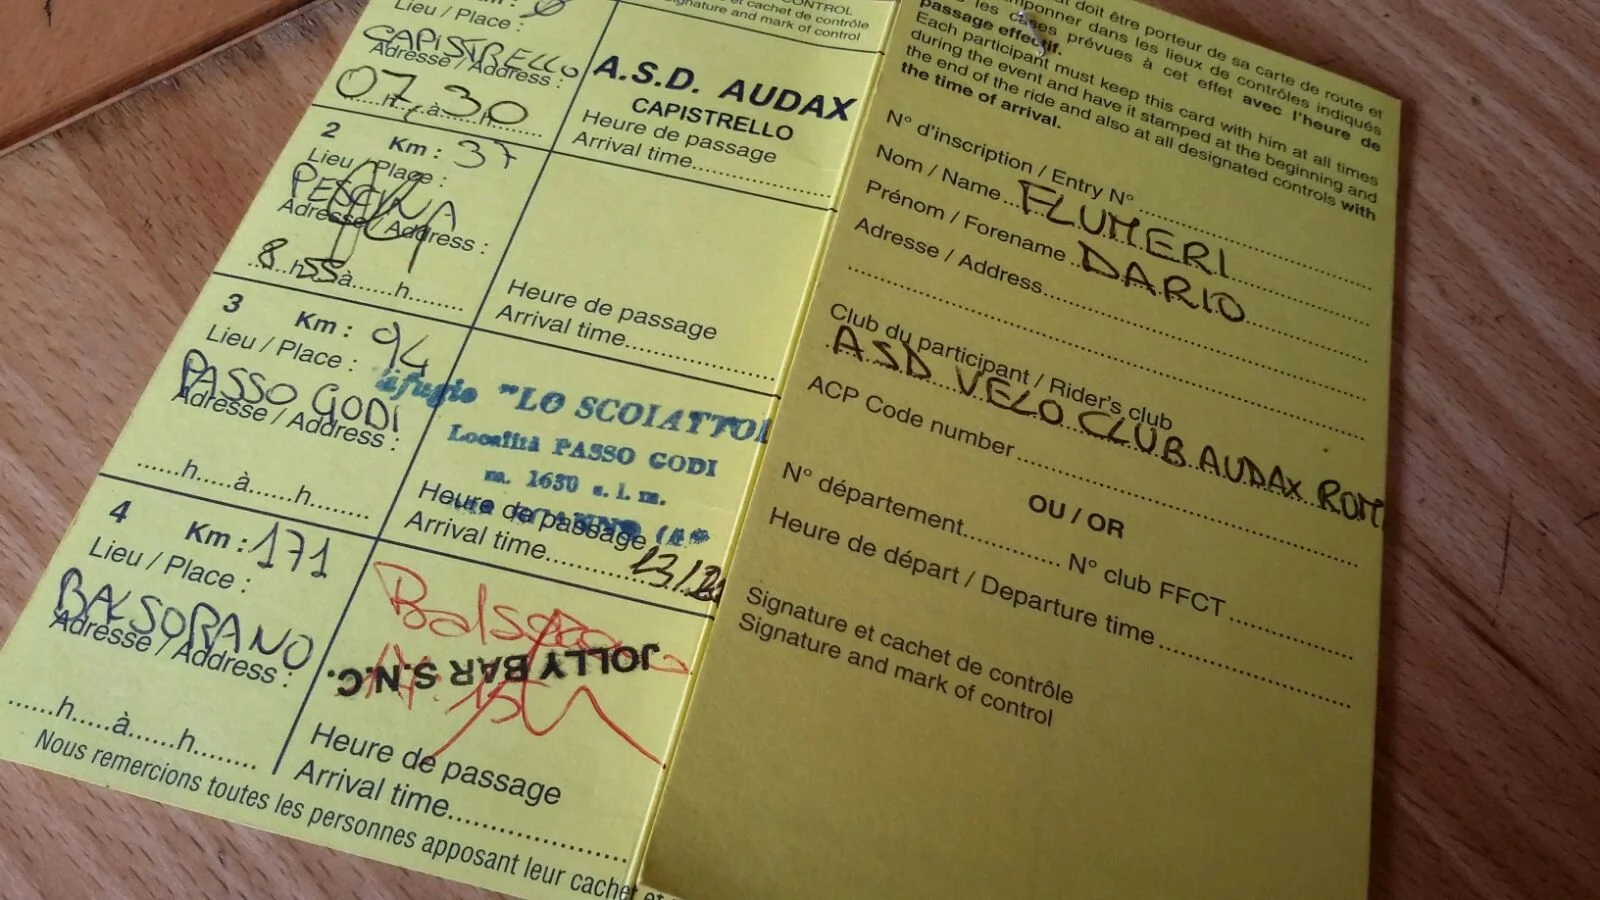 CONTROL
Lieu / Place :
et cachet de contrôle
Signature and mark of control
CAPISTRELLO
Adresse / Address :
07 30
......h......à......h......
A.S.D. AUDAX
CAPISTRELLO
Heure de passage
Arrival time
2
Km : 37
Lieu / Place :
PESCINA
Adresse / Address :
8 h 55 à ...... h ......
Heure de passage
Arrival time
3
Km : 94
Lieu / Place :
PASSO GODI
Adresse / Address :
......h......à......h......
"LO SCOIATTOL
Località PASSO GODI
m. 1630 s. l. m.
Heure de passage
Arrival time
4
Km : 171
Lieu / Place :
BALSORANO
Adresse / Address :
......h......à......h......
JOLLY BAR S.N.C.
Heure de passage
Arrival time
Nous remercions toutes les personnes apposant leur cachet et
doit être porteur de sa carte de route et
les cases prévues à cet effet avec l'heure de
passage effectif.
Each participant must keep this card with him at all times
during the event and have it stamped at the beginning and
the end of the ride and also at all designated controls with
the time of arrival.
N° d'inscription / Entry N°
Nom / Name FLUMERI
Prénom / Forename DARIO
Adresse / Address
Club du participant / Rider's club
ASD VELO CLUB AUDAX ROM
ACP Code number
OU / OR
N° département N° club FFCT
Heure de départ / Departure time
Signature et cachet de contrôle
Signature and mark of control